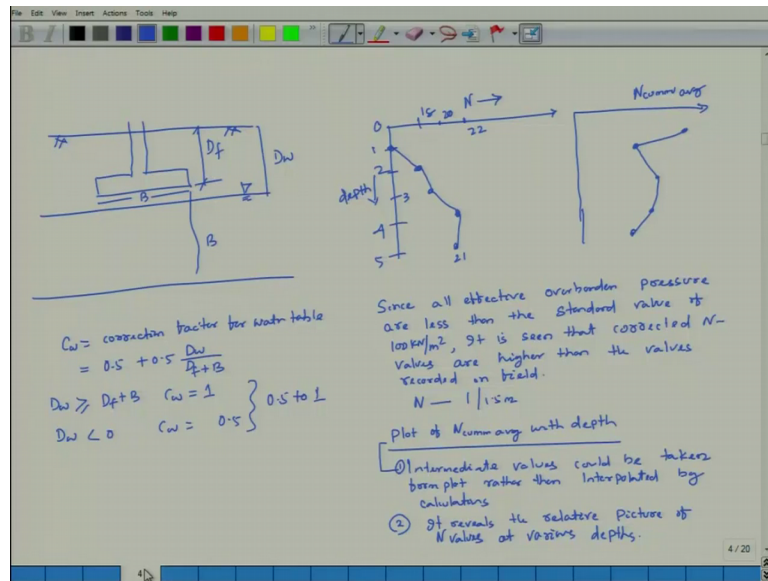 File Edit View Insert Actions Tools Help
B I
Df
Dw
B
B
Cw = correction factor for water table
= 0.5 + 0.5 Dw / Df + B
Dw ≥ Df + B Cw = 1
Dw < 0 Cw = 0.5 } 0.5 to 1
N →
18 20 22
0
1
2
3
4
5
depth
21
Ncumm avg
Since all effective overborden pressure
are less than the standard value of
100 kN/m², It is seen that corrected N-
values are higher than the values
recorded in field.
N — 1/1.5m
Plot of Ncumm avg with depth
① Intermediate values could be taken
form plot rather than Interpolated by
calculatans
② It reveals the relative Picture of
N values at various depths.
4 / 20
4